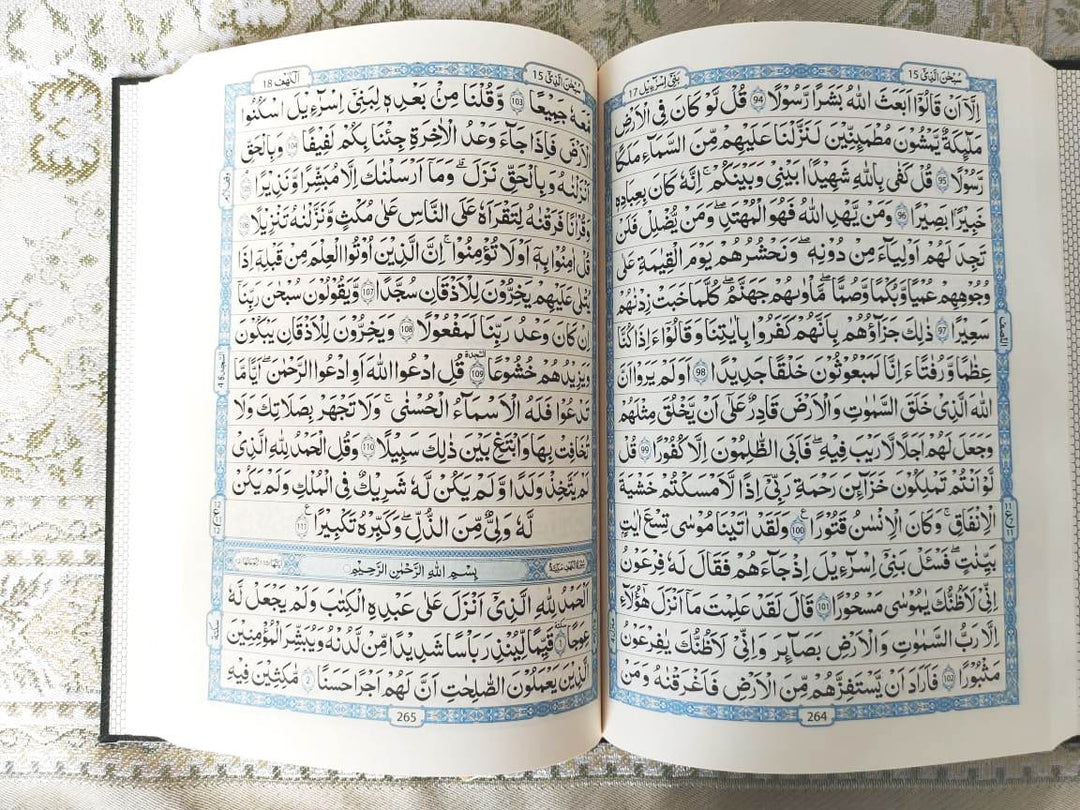 سُبْحٰنَ الَّذِیْۤ 15
بَنِیْۤ اِسْرَآءِیْل 17
اِلَّاۤ اَنْ قَالُوْۤا اَبَعَثَ اللّٰهُ بَشَرًا رَّسُوْلًا 94 قُلْ لَّوْ كَانَ فِی الْاَرْضِ
مَلٰٓئِكَةٌ یَّمْشُوْنَ مُطْمَئِنِّیْنَ لَنَزَّلْنَا عَلَیْهِمْ مِّنَ السَّمَآءِ مَلَكًا
رَّسُوْلًا 95 قُلْ كَفٰی بِاللّٰهِ شَهِیْدًۢا بَیْنِیْ وَبَیْنَكُمْ ؕ اِنَّهٗ كَانَ بِعِبَادِهٖ
خَبِیْرًۢا بَصِیْرًا 96 وَمَنْ یَّهْدِ اللّٰهُ فَهُوَ الْمُهْتَدِ ۚ وَمَنْ یُّضْلِلْ فَلَنْ
تَجِدَ لَهُمْ اَوْلِیَآءَ مِنْ دُوْنِهٖ ؕ وَنَحْشُرُهُمْ یَوْمَ الْقِیٰمَةِ عَلٰی
وُجُوْهِهِمْ عُمْیًا وَّبُكْمًا وَّصُمًّا ؕ مَاْوٰىهُمْ جَهَنَّمُ ؕ كُلَّمَا خَبَتْ زِدْنٰهُمْ
سَعِیْرًا 97 ذٰلِكَ جَزَآؤُهُمْ بِاَنَّهُمْ كَفَرُوْا بِاٰیٰتِنَا وَقَالُوْۤا ءَاِذَا كُنَّا
عِظَامًا وَّرُفَاتًا ءَاِنَّا لَمَبْعُوْثُوْنَ خَلْقًا جَدِیْدًا 98 اَوَلَمْ یَرَوْا اَنَّ
اللّٰهَ الَّذِیْ خَلَقَ السَّمٰوٰتِ وَالْاَرْضَ قَادِرٌ عَلٰۤی اَنْ یَّخْلُقَ مِثْلَهُمْ
وَجَعَلَ لَهُمْ اَجَلًا لَّا رَیْبَ فِیْهِ ؕ فَاَبَی الظّٰلِمُوْنَ اِلَّا كُفُوْرًا 99 قُلْ
لَّوْ اَنْتُمْ تَمْلِكُوْنَ خَزَآئِنَ رَحْمَةِ رَبِّیْۤ اِذًا لَّاَمْسَكْتُمْ خَشْیَةَ
الْاِنْفَاقِ ؕ وَكَانَ الْاِنْسَانُ قَتُوْرًا 100 وَلَقَدْ اٰتَیْنَا مُوْسٰی تِسْعَ اٰیٰتٍۭ
بَیِّنٰتٍ ۖ فَسْـَٔلْ بَنِیْۤ اِسْرَآءِیْلَ اِذْ جَآءَهُمْ فَقَالَ لَهٗ فِرْعَوْنُ
اِنِّیْ لَاَظُنُّكَ یٰمُوْسٰی مَسْحُوْرًا 101 قَالَ لَقَدْ عَلِمْتَ مَاۤ اَنْزَلَ هٰۤؤُلَآءِ
اِلَّا رَبُّ السَّمٰوٰتِ وَالْاَرْضِ بَصَآئِرَ ۚ وَاِنِّیْ لَاَظُنُّكَ یٰفِرْعَوْنُ
مَثْبُوْرًا 102 فَاَرَادَ اَنْ یَّسْتَفِزَّهُمْ مِّنَ الْاَرْضِ فَاَغْرَقْنٰهُ وَمَنْ
النصف
264
سُبْحٰنَ الَّذِیْۤ 15
اَلْكَهْف 18
مَّعَهٗ جَمِیْعًا 103 وَّقُلْنَا مِنْۢ بَعْدِهٖ لِبَنِیْۤ اِسْرَآءِیْلَ اسْكُنُوا
الْاَرْضَ فَاِذَا جَآءَ وَعْدُ الْاٰخِرَةِ جِئْنَا بِكُمْ لَفِیْفًا 104 وَبِالْحَقِّ
اَنْزَلْنٰهُ وَبِالْحَقِّ نَزَلَ ؕ وَمَاۤ اَرْسَلْنٰكَ اِلَّا مُبَشِّرًا وَّنَذِیْرًا 105
وَقُرْاٰنًا فَرَقْنٰهُ لِتَقْرَاَهٗ عَلَی النَّاسِ عَلٰی مُكْثٍ وَّنَزَّلْنٰهُ تَنْزِیْلًا 106
قُلْ اٰمِنُوْا بِهٖۤ اَوْ لَا تُؤْمِنُوْا ؕ اِنَّ الَّذِیْنَ اُوْتُوا الْعِلْمَ مِنْ قَبْلِهٖۤ اِذَا
یُتْلٰی عَلَیْهِمْ یَخِرُّوْنَ لِلْاَذْقَانِ سُجَّدًا 107 وَّیَقُوْلُوْنَ سُبْحٰنَ رَبِّنَاۤ
اِنْ كَانَ وَعْدُ رَبِّنَا لَمَفْعُوْلًا 108 وَیَخِرُّوْنَ لِلْاَذْقَانِ یَبْكُوْنَ
وَیَزِیْدُهُمْ خُشُوْعًا 109 السجدة قُلِ ادْعُوا اللّٰهَ اَوِ ادْعُوا الرَّحْمٰنَ ؕ اَیًّا مَّا
تَدْعُوْا فَلَهُ الْاَسْمَآءُ الْحُسْنٰی ۚ وَلَا تَجْهَرْ بِصَلَاتِكَ وَلَا
تُخَافِتْ بِهَا وَابْتَغِ بَیْنَ ذٰلِكَ سَبِیْلًا 110 وَقُلِ الْحَمْدُ لِلّٰهِ الَّذِیْ
لَمْ یَتَّخِذْ وَلَدًا وَّلَمْ یَكُنْ لَّهٗ شَرِیْكٌ فِی الْمُلْكِ وَلَمْ یَكُنْ
لَّهٗ وَلِیٌّ مِّنَ الذُّلِّ وَكَبِّرْهُ تَكْبِیْرًا 111
بِسْمِ اللّٰهِ الرَّحْمٰنِ الرَّحِیْمِ
اَلْحَمْدُ لِلّٰهِ الَّذِیْۤ اَنْزَلَ عَلٰی عَبْدِهِ الْكِتٰبَ وَلَمْ یَجْعَلْ لَّهٗ
عِوَجًا 1 سكتة قَیِّمًا لِّیُنْذِرَ بَاْسًا شَدِیْدًا مِّنْ لَّدُنْهُ وَیُبَشِّرَ الْمُؤْمِنِیْنَ
الَّذِیْنَ یَعْمَلُوْنَ الصّٰلِحٰتِ اَنَّ لَهُمْ اَجْرًا حَسَنًا 2 مَّاكِثِیْنَ فِیْهِ
السجدة 4
سكتة
265